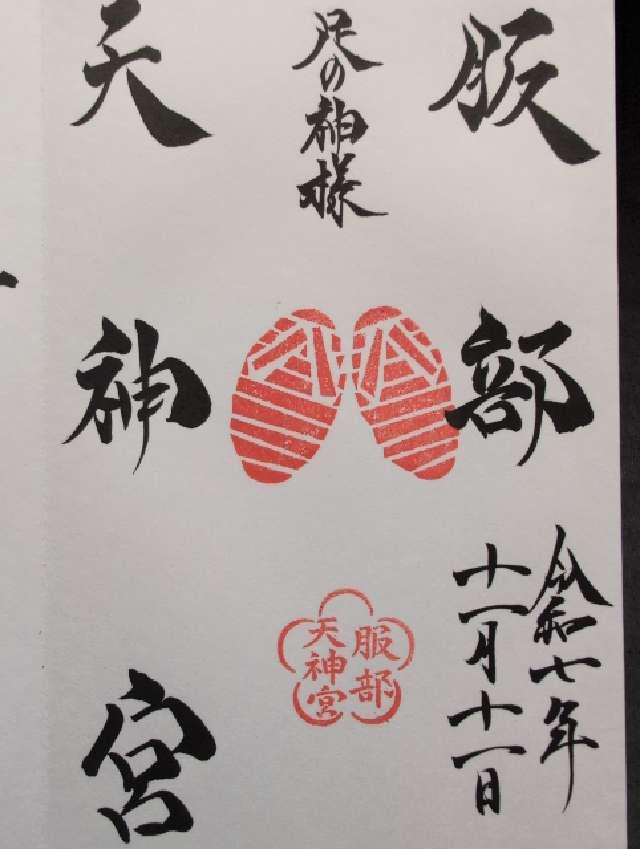 服部
令和七年
十一月十一日
足の神様
服部
天神宮
天神宮